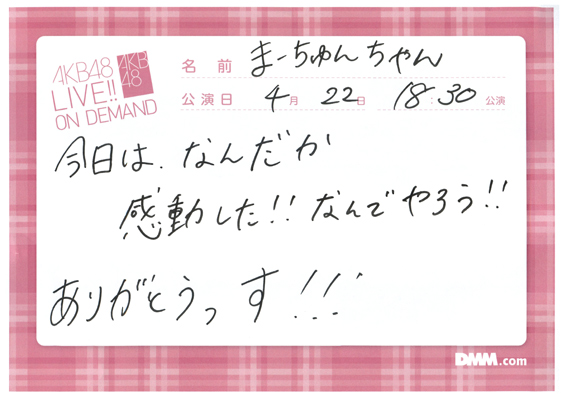 AKB48
LIVE!!
ON DEMAND
AKB
48
名前 まーちゅんちゃん
公演日 4月 22日 18:30 公演
今日は、なんだか
感動した!! なんでやろう!!
ありがとうっす!!!
DMM.com